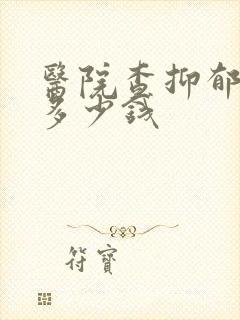 醫院查抑郁
多少錢
符寶